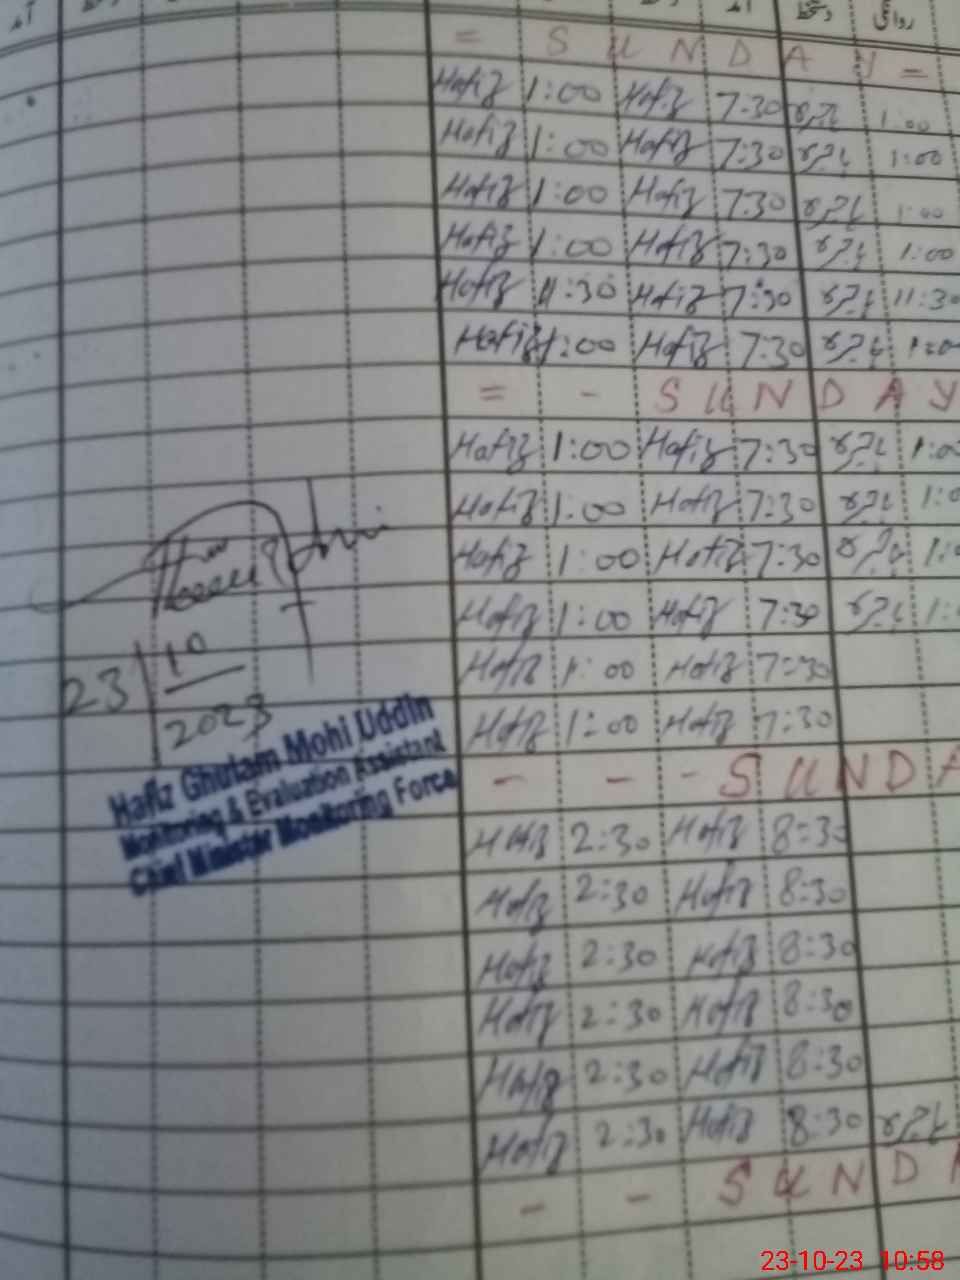 آمد دستخط روانگی
= S U N D A Y -
Hafiz 1:00 Hafiz 7:30 1:00
Hafiz 1:00 Hafiz 7:30 1:00
Hafiz 1:00 Hafiz 7:30 1:00
Hafiz 1:00 Hafiz 7:30 1:00
Hafiz 11:30 Hafiz 7:30 11:30
Hafiz 1:00 Hafiz 7:30 1:00
= - S U N D A Y
Hafiz 1:00 Hafiz 7:30 1:00
Hafiz 1:00 Hafiz 7:30 1:0
Hafiz 1:00 Hafiz 7:30 1:0
Hafiz 1:00 Hafiz 7:30 1:
Hafiz 1:00 Hafiz 7:30
Hafiz 1:00 Hafiz 7:30
- - - S U N D A
Hafiz 2:30 Hafiz 8:30
Hafiz 2:30 Hafiz 8:30
Hafiz 2:30 Hafiz 8:30
Hafiz 2:30 Hafiz 8:30
Hafiz 2:30 Hafiz 8:30
Hafiz 2:30 Hafiz 8:30
- - S U N D A
23/10
2023
Hafiz Ghulam Mohi Uddin
Monitoring & Evaluation Assistant
Chief Minister Monitoring Force
23-10-23 10:58